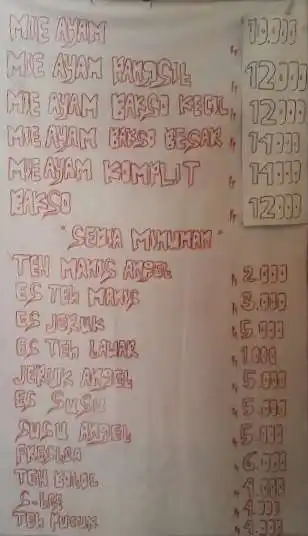 MIE AYAM Rp 10.000
MIE AYAM PANGSIT Rp 12000
MIE AYAM BAKSO KECIL Rp 12000
MIE AYAM BAKSO BESAR Rp 14000
MIE AYAM KOMPLIT Rp 14000
BAKSO Rp 12000
"SEDIA MINUMAN"
TEH MANIS ANGET Rp 2.000
ES TEH MANIS Rp 3.000
ES JERUK Rp 5.000
ES TEH TAWAR Rp 1.000
JERUK ANGET Rp 5.000
ES SUSU Rp 5.000
SUSU ANGET Rp 5.000
FRESTEA Rp 6.000
TEH BOTOL Rp 4.000
S-TEE Rp 4.000
TEH PUCUK Rp 4.000